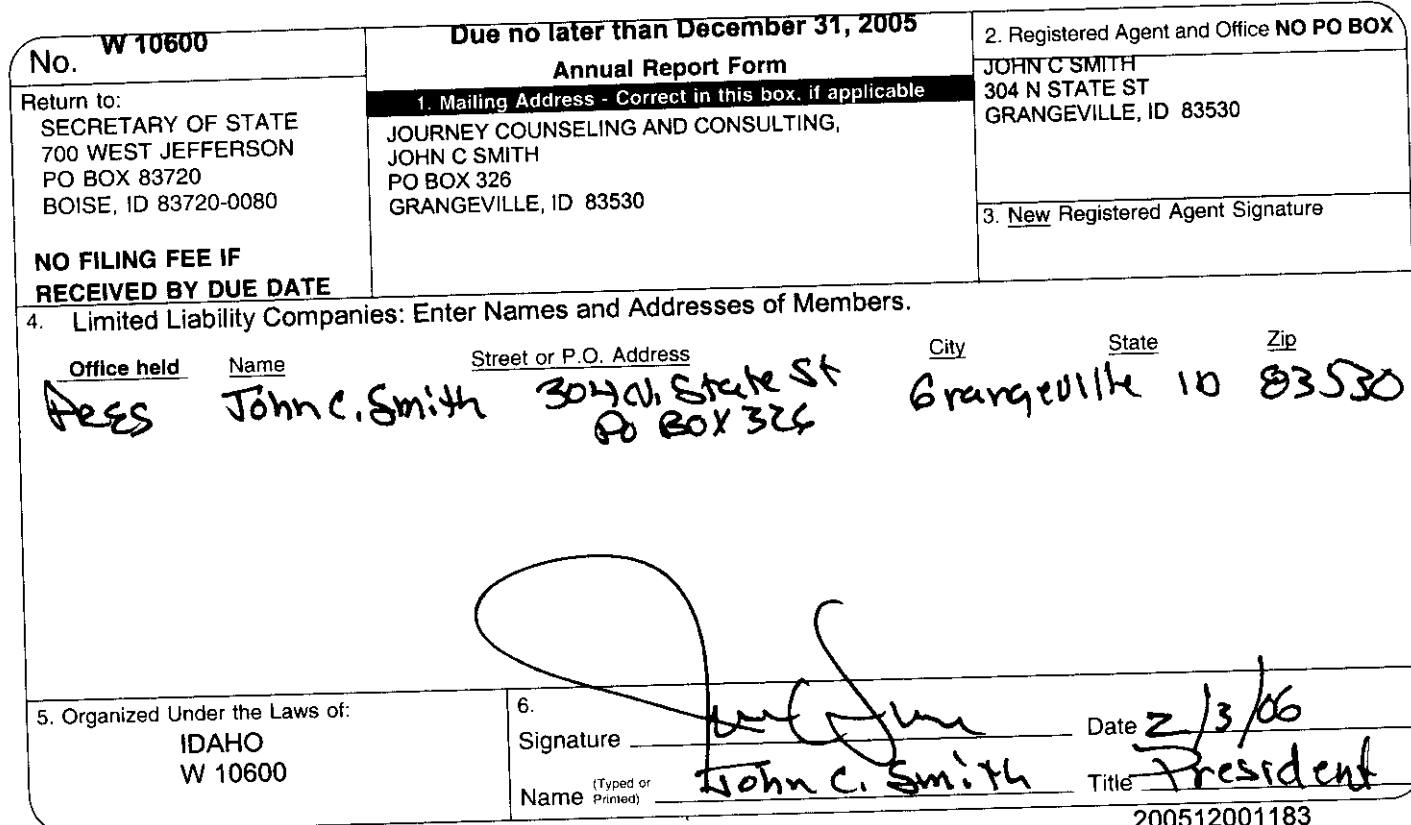 No. W 10600
Return to:
SECRETARY OF STATE
700 WEST JEFFERSON
PO BOX 83720
BOISE, ID 83720-0080
NO FILING FEE IF
RECEIVED BY DUE DATE
Due no later than December 31, 2005
Annual Report Form
1. Mailing Address - Correct in this box, if applicable
JOURNEY COUNSELING AND CONSULTING,
JOHN C SMITH
PO BOX 326
GRANGEVILLE, ID 83530
2. Registered Agent and Office NO PO BOX
JOHN C SMITH
304 N STATE ST
GRANGEVILLE, ID 83530
3. New Registered Agent Signature
4. Limited Liability Companies: Enter Names and Addresses of Members.
Office held Name Street or P.O. Address City State Zip
John C. Smith 304 N. State St Grangeville ID 83530
PO BOX 326
5. Organized Under the Laws of:
IDAHO
W 10600
6.
Signature Date 2/3/06
Name (Typed or Printed) John C. Smith Title President
200512001183